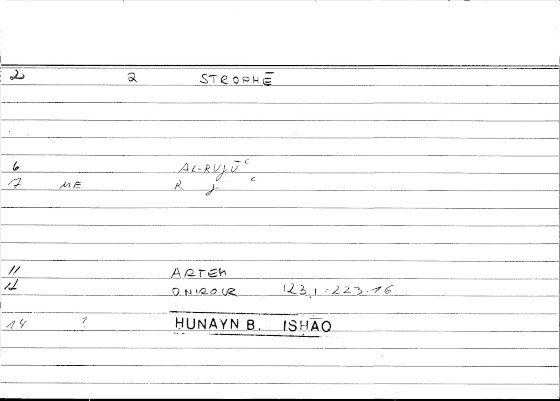 2 2 STROPHĒ
6 AL-RUJŪʿ
7 ME R j ʿ
11 ARTEM
12 ONIROCR 123,1 = 223.16
14 ? HUNAYN B. ISHĀQ